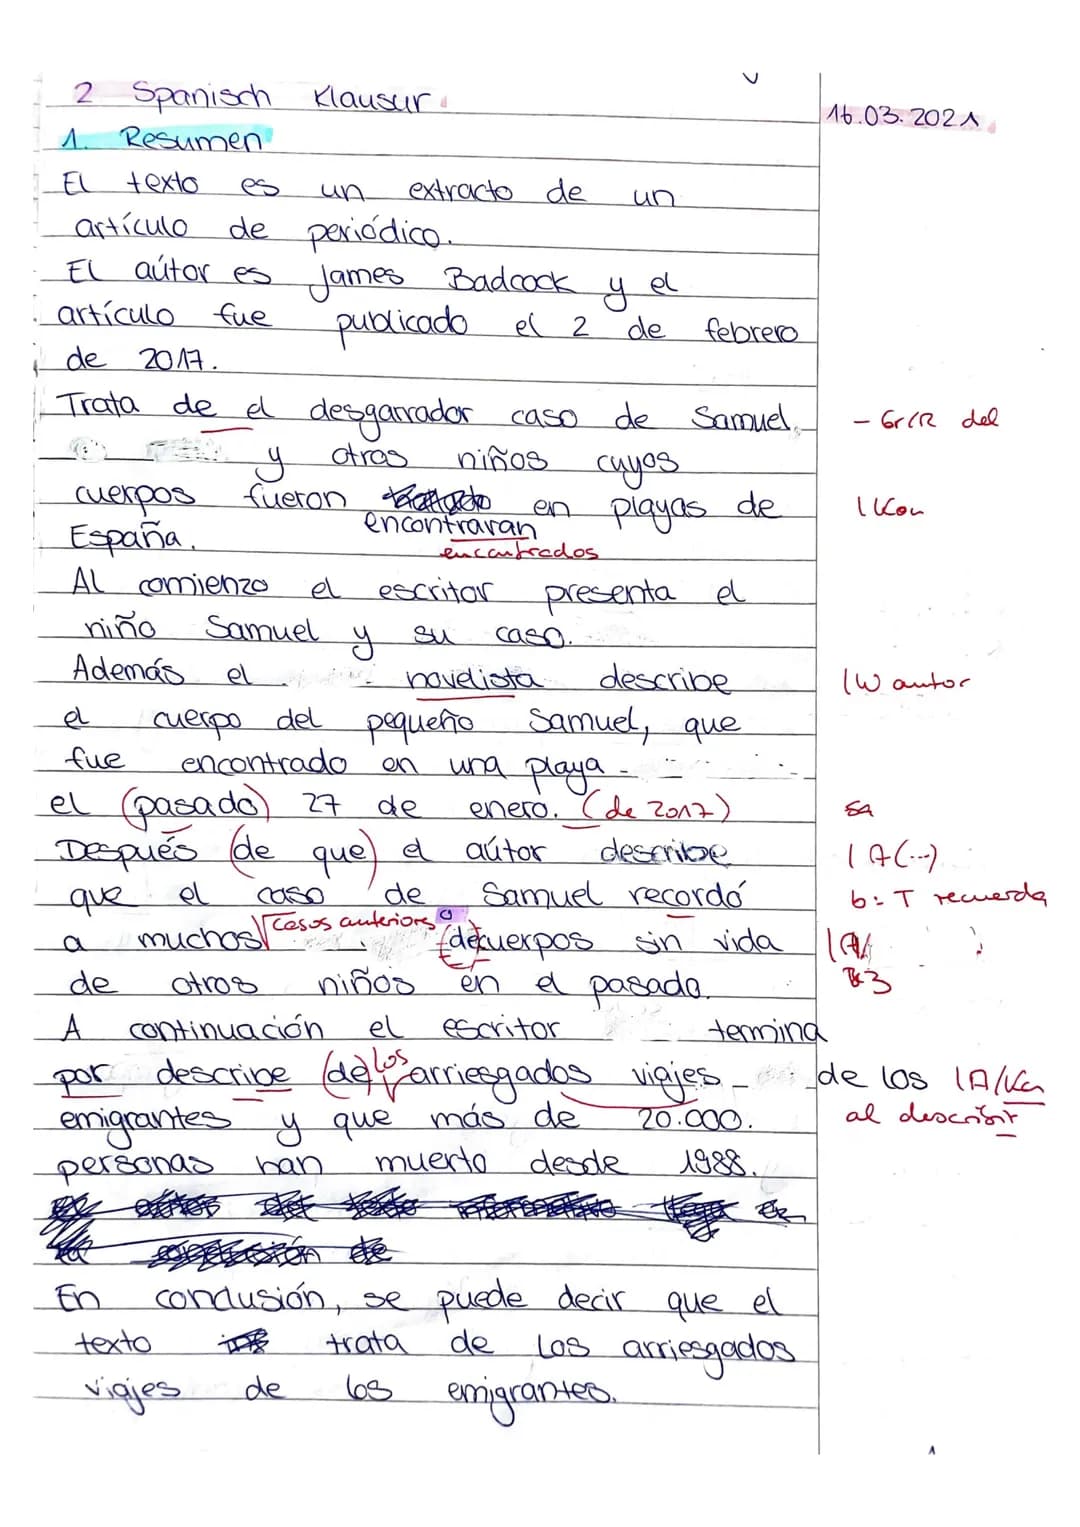 2 Spanisch Klausur
16.03.2021
1. Resumen
El texto es un extracto de un
artículo de periódico.
El aútor es James Badcock y el
artículo fue publicado el 2 de febrero
de 2017.
Trata de el desgarrador caso de Samuel, - Gr/R del
y otros niños cuyos
cuerpos fueron en playas de 1 Kon
encontraran
España.
encontrados
Al comienzo el escritor presenta el
niño Samuel y su caso.
Además el novelista describe 1W autor
el cuerpo del pequeño Samuel, que
fue encontrado en una playa
el (pasado) 27 de enero. (de 2017) SA
Después (de que) el aútor describe 1 A(...)
que el caso de Samuel recordó b: T recuerda
a muchos √ casos anteriores o (de) cuerpos sin vida 1A/
de otros niños en el pasado.
A continuación el escritor termina
por describe (de) los arriesgados viajes de los 1A/Kon
emigrantes y que más de 20.000. al describir
personas han muerto desde 1988.
En conclusión, se puede decir que el
texto trata de los arriesgados
viajes de los emigrantes.
1